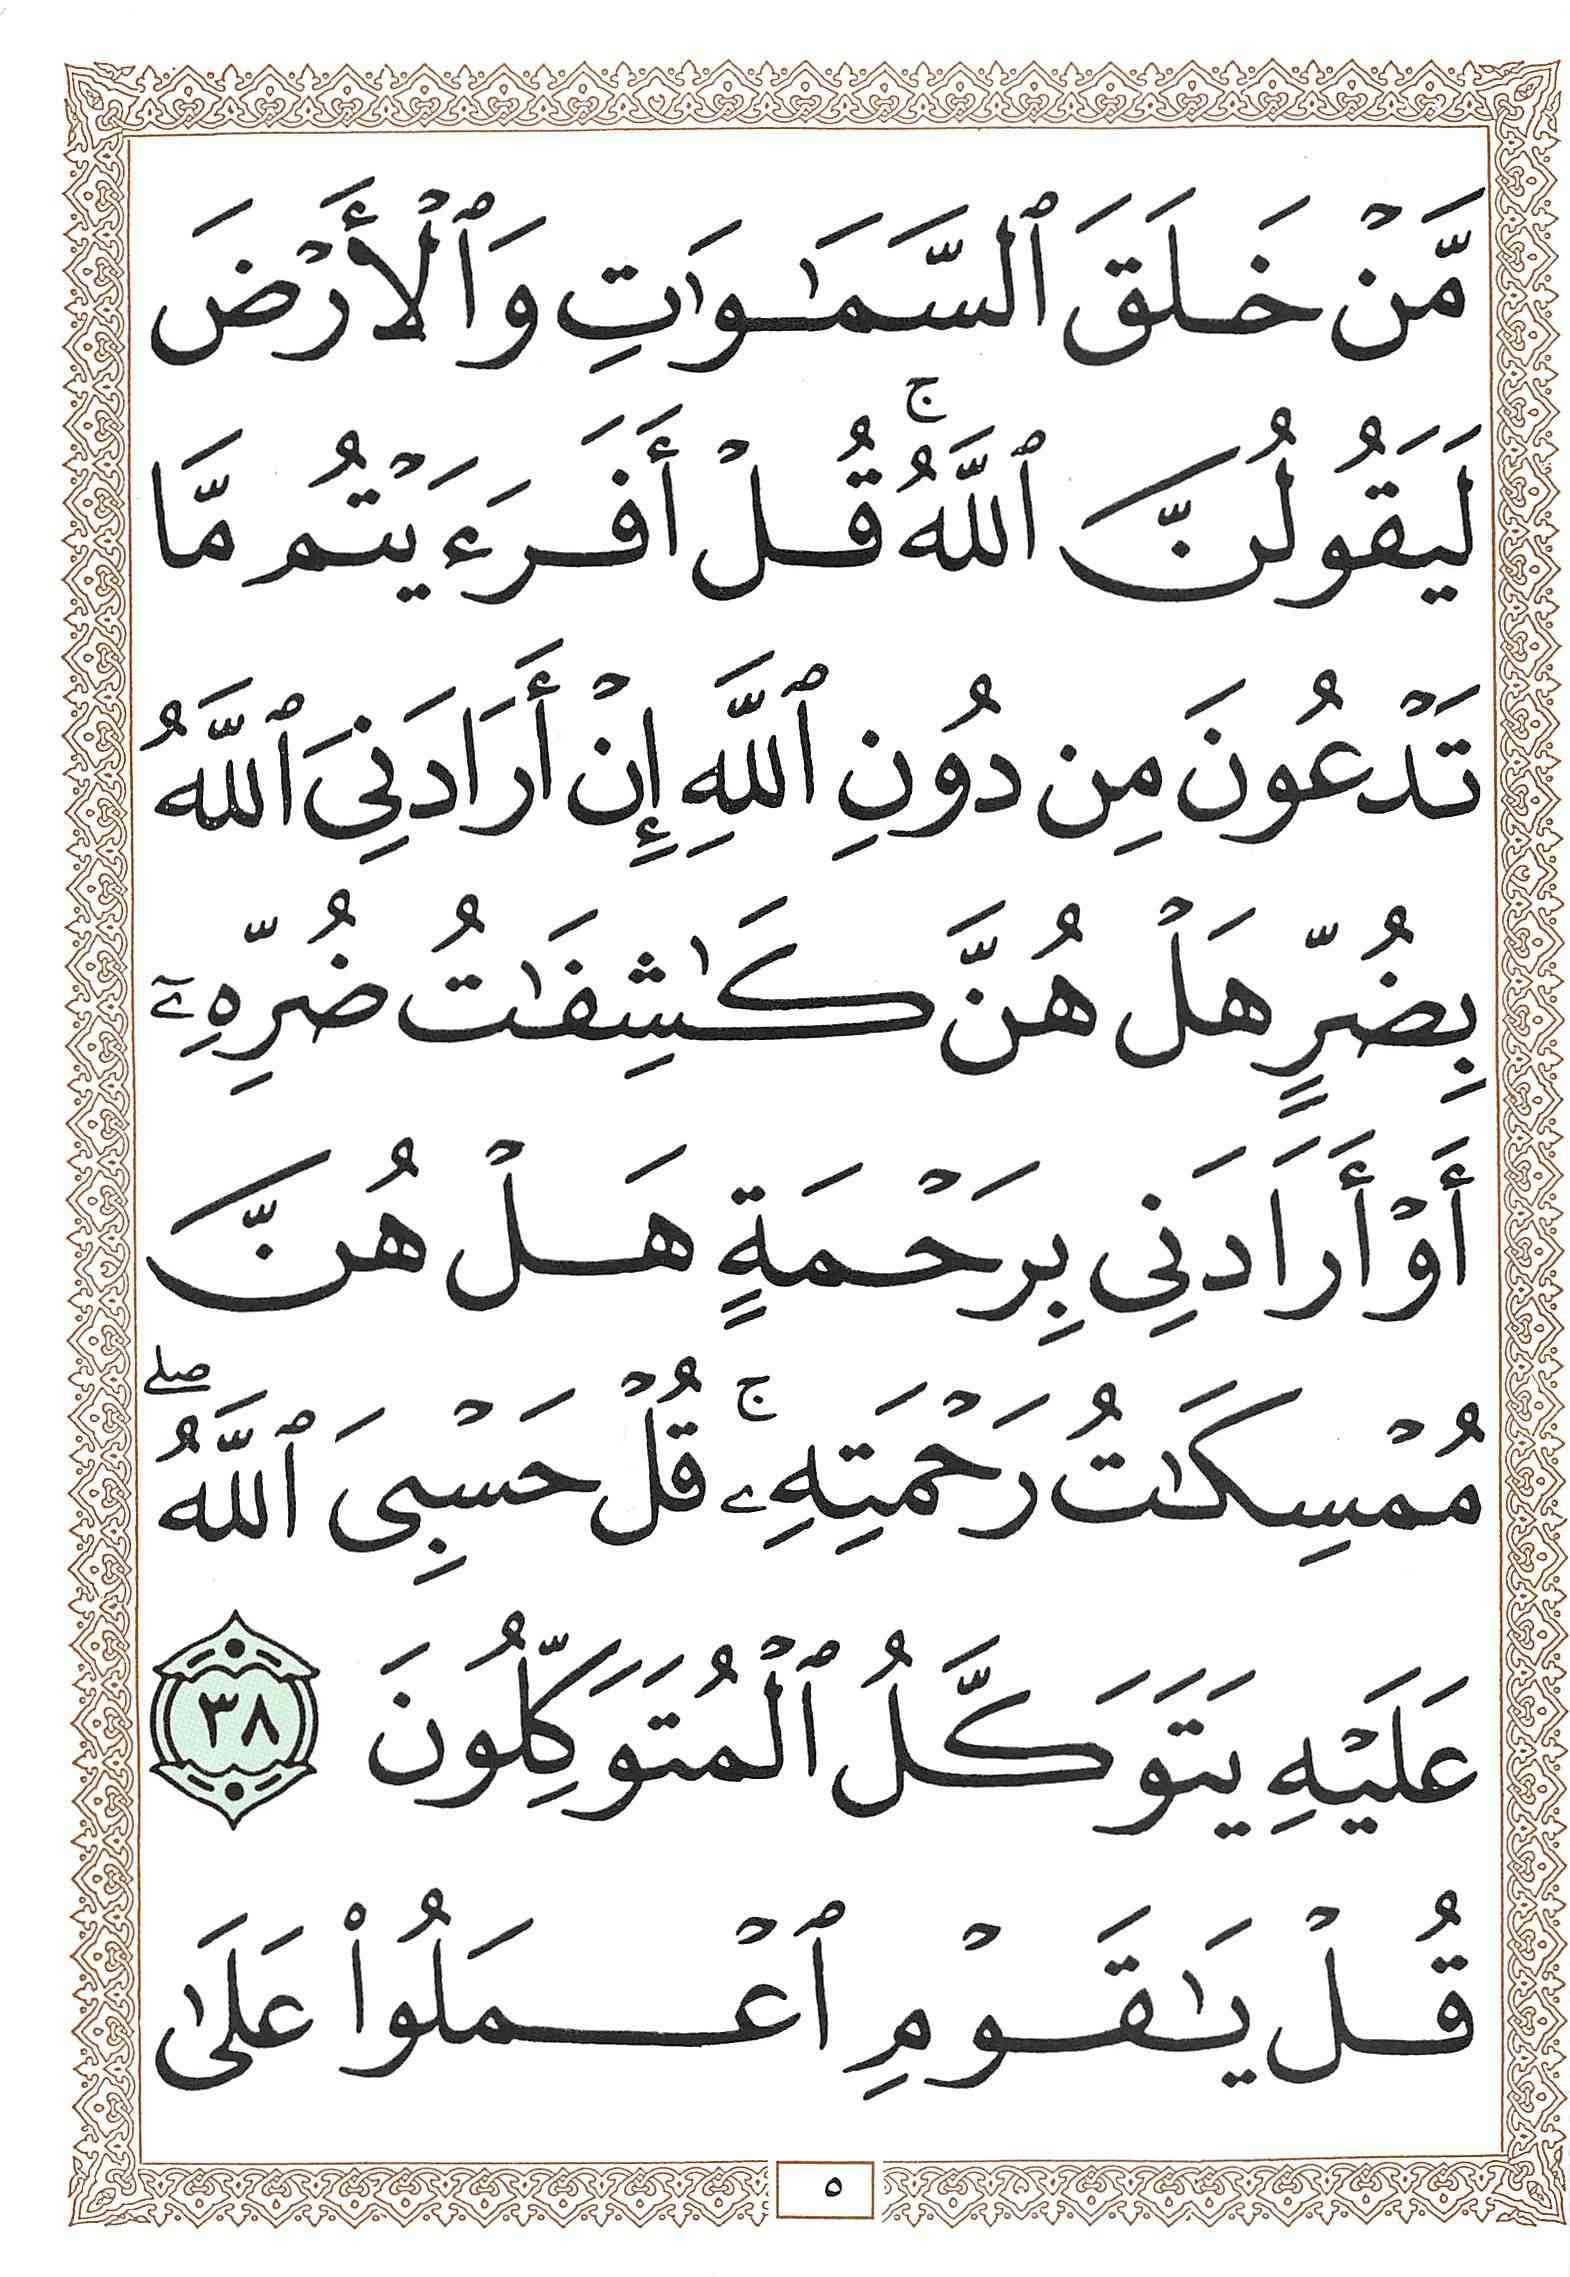 مَّنْ خَلَقَ ٱلسَّمَٰوَٰتِ وَٱلْأَرْضَ
لَيَقُولُنَّ ٱللَّهُ ۚ قُلْ أَفَرَءَيْتُم مَّا
تَدْعُونَ مِن دُونِ ٱللَّهِ إِنْ أَرَادَنِىَ ٱللَّهُ
بِضُرٍّ هَلْ هُنَّ كَٰشِفَٰتُ ضُرِّهِۦٓ
أَوْ أَرَادَنِى بِرَحْمَةٍ هَلْ هُنَّ
مُمْسِكَٰتُ رَحْمَتِهِۦ ۚ قُلْ حَسْبِىَ ٱللَّهُ ۖ
عَلَيْهِ يَتَوَكَّلُ ٱلْمُتَوَكِّلُونَ ٣٨
قُلْ يَٰقَوْمِ ٱعْمَلُوا۟ عَلَىٰ
٥